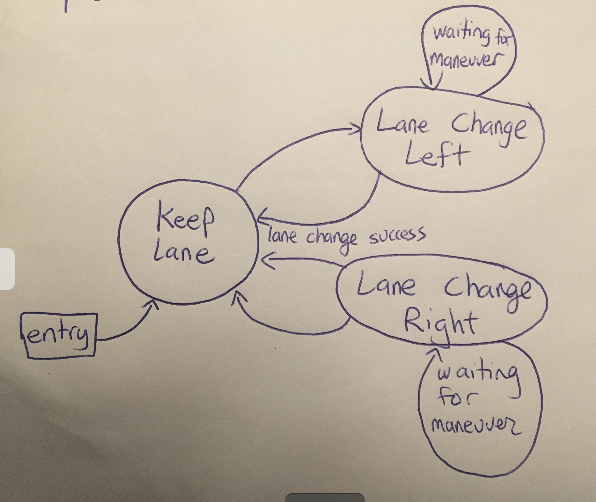 waiting for
maneuver
Lane Change
Left
Keep
Lane
lane change success
Lane Change
Right
entry
waiting
for
maneuver